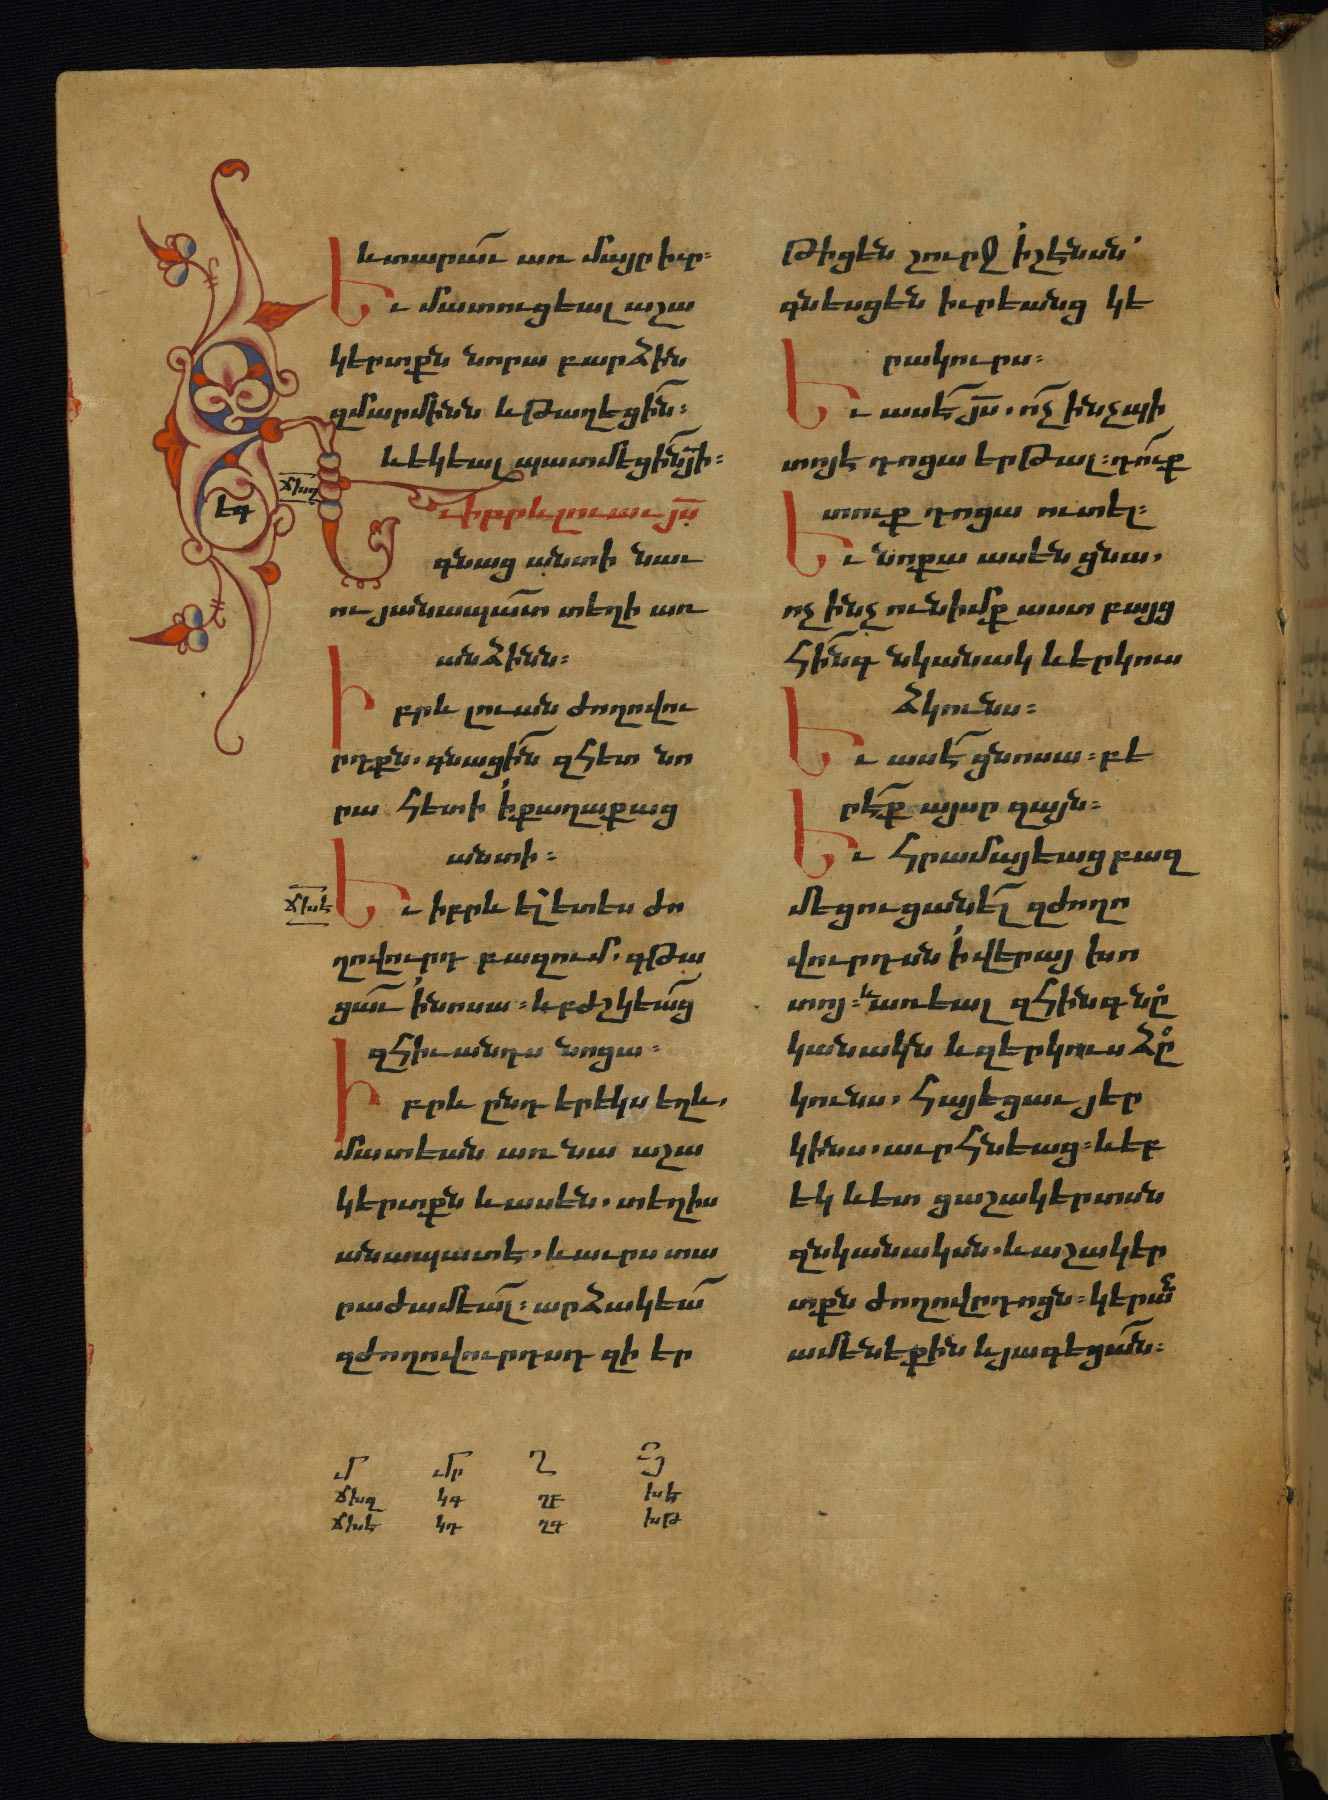 և տարաւ առ մայր իւր։
Եւ մատուցեալ աշա
կերտքն նորա բարձին
զմարմինն և թաղեցին։
և եկեալ պատմեցին յի։
ճխզ
Եւ իբրև լուաւ յս
էգ
գնաց անտի նաւ
ու յանապատ տեղի առ
անձինն։
Իբրև լուան ժողովու
րդքն. գնացին զհետ նո
րա հետի ի քաղաքաց
անտի։
ճխէ
Եւ իբրև ել ետես ժո
ղովուրդ բազում. գթա
ցաւ ի նոսա։ և բժշկեաց
զհիւանդս նոցա։
Իբրև ընդ երեկս եղև.
մատեան առ նա աշա
կերտքն և ասեն. տեղիս
անապատ է. և աւրս տա
րաժամեալ։ արձակեա
զժողովուրդսդ զի եր
թիցեն շուրջ ի շէնսն
գնեսցեն իւրեանց կե
րակուրս։
Եւ ասէ յս. ոչ ինչ պի
տոյ է դոցա երթալ։ դուք
տուք դոցա ուտել։
Եւ նոքա ասեն ցնա.
ոչ ինչ ունիմք աստ բայց
հինգ նկանակ և երկուս
ձկունս։
Եւ ասէ ցնոսա։ բե
րէք այսր զայն։
Եւ հրամայեաց բազ
մեցուցանել զժողո
վուրդսն ի վերայ խո
տոյ։ և առեալ զհինգ նը
կանակն և զերկուս ձը
կունս. հայեցաւ յեր
կինս. աւրհնեաց։ և եբ
եկ և ետ ցաշակերտսն
զնկանակսն. և աշակեր
տքն ժողովրդոցն։ կերան
ամենեքին և յագեցան։
մ մր ղ յ
ճխզ կգ ղբ խէ
ճխէ կդ ղգ խթ